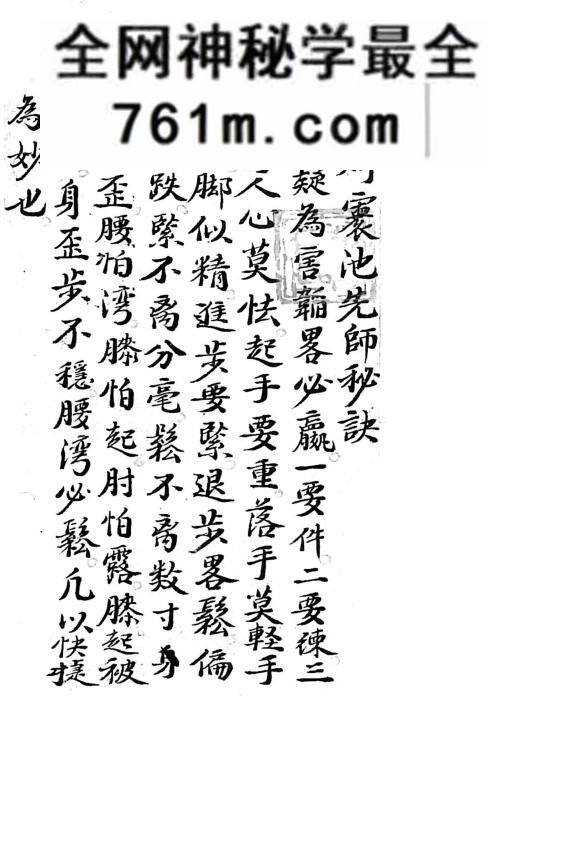 全网神秘学最全
761m.com
囊池先師秘訣
疑為害韜畧必贏一要件二要練三
人心莫怯起手要重落手莫輕手
脚似精進步要緊退步畧鬆偏
跌緊不离分毫鬆不离数寸身
歪腰怕湾膝怕起肘怕露膝起被
身歪步不穩腰湾必鬆凢以快捷
為妙也